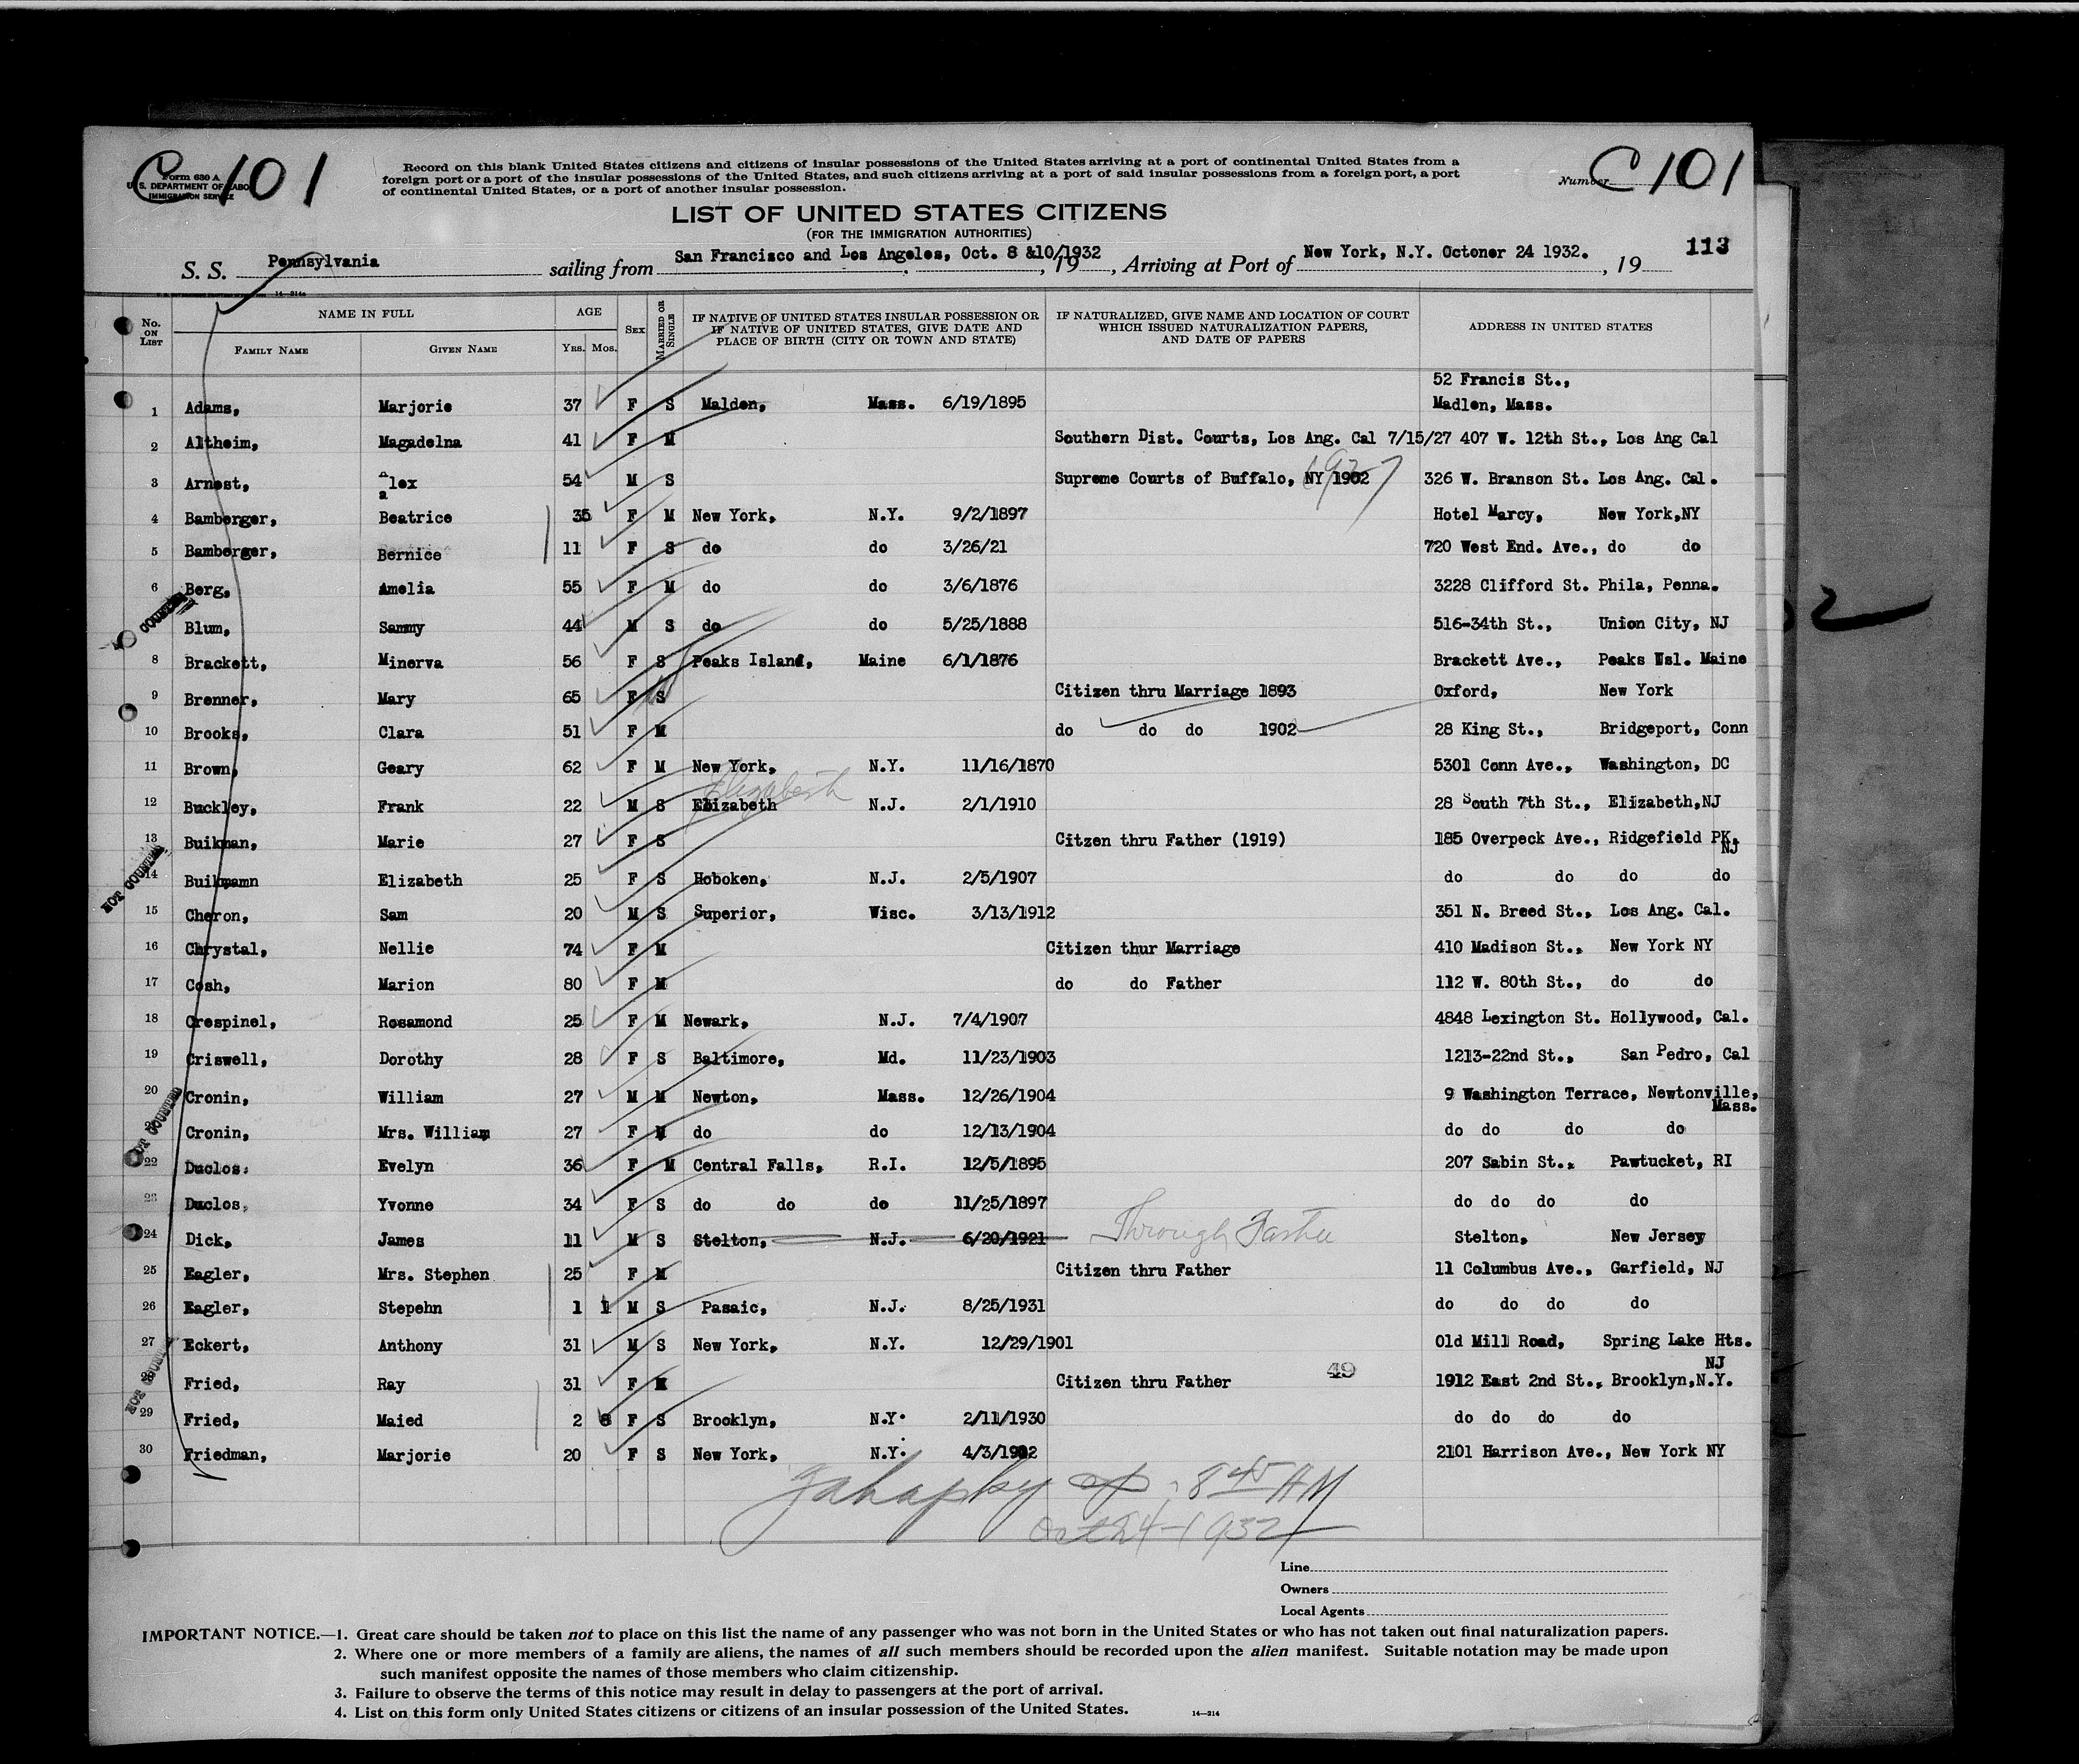 C 101
Form 630 A
U. S. DEPARTMENT OF LABO
IMMIGRATION SERVICE
Record on this blank United States citizens and citizens of insular possessions of the United States arriving at a port of continental United States from a
foreign port or a port of the insular possessions of the United States, and such citizens arriving at a port of said insular possessions from a foreign port, a port
of continental United States, or a port of another insular possession.
Number C 101
LIST OF UNITED STATES CITIZENS
(FOR THE IMMIGRATION AUTHORITIES)
113
S. S. Pennsylvania sailing from San Francisco and Los Angeles, Oct. 8 &10/1932, 19, Arriving at Port of New York, N.Y. Octoner 24 1932., 19
14—214a
No. ON LIST NAME IN FULL AGE SEX MARRIED OR SINGLE IF NATIVE OF UNITED STATES INSULAR POSSESSION OR IF NATIVE OF UNITED STATES, GIVE DATE AND PLACE OF BIRTH (CITY OR TOWN AND STATE) IF NATURALIZED, GIVE NAME AND LOCATION OF COURT WHICH ISSUED NATURALIZATION PAPERS, AND DATE OF PAPERS ADDRESS IN UNITED STATES
FAMILY NAME GIVEN NAME YRS. MOS.
52 Francis St.,
1 Adams, Marjorie 37 F S Malden, Mass. 6/19/1895 Madlen, Mass.
2 Altheim, Magadelna 41 F M Southern Dist. Courts, Los Ang. Cal 7/15/27 407 W. 12th St., Los Ang Cal
3 Arnest, Alex 54 M S Supreme Courts of Buffalo, NY 1902 1927 326 W. Branson St. Los Ang. Cal.
a
4 Bamberger, Beatrice 35 F M New York, N.Y. 9/2/1897 Hotel Marcy, New York,NY
5 Bamberger, Bernice 11 F S do do 3/26/21 720 West End. Ave., do do
6 Berg, Amelia 55 F M do do 3/6/1876 3228 Clifford St. Phila, Penna.
Blum, Sammy 44 M S do do 5/25/1888 516-34th St., Union City, NJ
8 Brackett, Minerva 56 F S Peaks Island, Maine 6/1/1876 Brackett Ave., Peaks Nsl. Maine
9 Brenner, Mary 65 F S Citizen thru Marriage 1893 Oxford, New York
10 Brooks, Clara 51 F M do do do 1902 28 King St., Bridgeport, Conn
11 Brown, Geary 62 F M New York, N.Y. 11/16/1870 5301 Conn Ave., Washington, DC
Elizabeth
12 Buckley, Frank 22 M S Elizabeth N.J. 2/1/1910 28 South 7th St., Elizabeth,NJ
13 Buikman, Marie 27 F S Citzen thru Father (1919) 185 Overpeck Ave., Ridgefield PK.
NJ
14 Buikmamn Elizabeth 25 F S Hoboken, N.J. 2/5/1907 do do do do
NOT COUNTED
15 Cheron, Sam 20 M S Superior, Wisc. 3/13/1912 351 N. Breed St., Los Ang. Cal.
16 Chrystal, Nellie 74 F M Citizen thur Marriage 410 Madison St., New York NY
17 Cosh, Marion 80 F M do do Father 112 W. 80th St., do do
18 Crespinel, Rosamond 25 F M Newark, N.J. 7/4/1907 4848 Lexington St. Hollywood, Cal.
19 Criswell, Dorothy 28 F S Baltimore, Md. 11/23/1903 1213-22nd St., San Pedro, Cal
20 Cronin, William 27 M M Newton, Mass. 12/26/1904 9 Washington Terrace, Newtonville,
Mass.
Cronin, Mrs. William 27 F M do do 12/13/1904 do do do do
22 Duclos, Evelyn 36 F M Central Falls, R.I. 12/5/1895 207 Sabin St., Pawtucket, RI
23 Duclos, Yvonne 34 F S do do do 11/25/1897 do do do do
24 Dick, James 11 M S Stelton, N.J. 6/20/1921 Through Father Stelton, New Jersey
25 Eagler, Mrs. Stephen 25 F M Citizen thru Father 11 Columbus Ave., Garfield, NJ
26 Eagler, Stepehn 1 1 M S Pasaic, N.J. 8/25/1931 do do do do
27 Eckert, Anthony 31 M S New York, N.Y. 12/29/1901 Old Mill Road, Spring Lake Hts.
NJ
28 Fried, Ray 31 F M Citizen thru Father 49 1912 East 2nd St., Brooklyn,N.Y.
29 Fried, Maied 2 8 F S Brooklyn, N.Y. 2/11/1930 do do do do
30 Friedman, Marjorie 20 F S New York, N.Y. 4/3/1902 2101 Harrison Ave., New York NY
8 45 AM
Oct 24-1932
Line
Owners
Local Agents
IMPORTANT NOTICE.—1. Great care should be taken not to place on this list the name of any passenger who was not born in the United States or who has not taken out final naturalization papers.
2. Where one or more members of a family are aliens, the names of all such members should be recorded upon the alien manifest. Suitable notation may be made upon
such manifest opposite the names of those members who claim citizenship.
3. Failure to observe the terms of this notice may result in delay to passengers at the port of arrival.
4. List on this form only United States citizens or citizens of an insular possession of the United States.
14—214